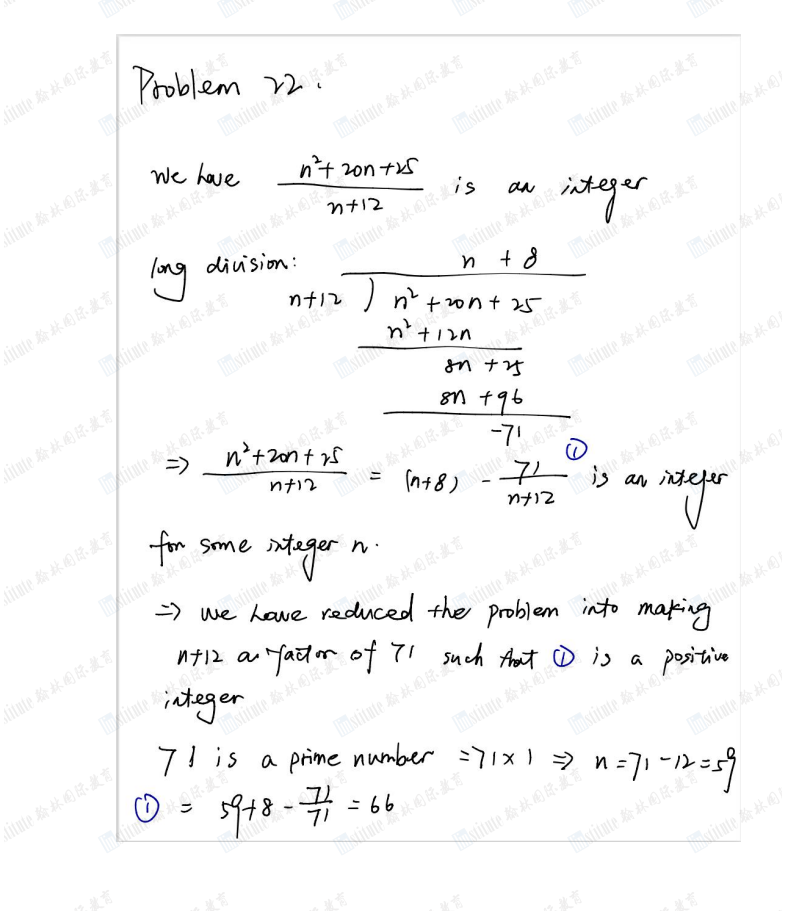 Problem 22.
We have n²+20n+25 / n+12 is an integer
long division: n + 8
n+12 ) n² + 20n + 25
n² + 12n
8n + 25
8n + 96
-71
=> n²+20n+25 / n+12 = (n+8) - 71 / n+12 ① is an integer
for some integer n.
=> we have reduced the problem into making
n+12 a factor of 71 such that ① is a positive
integer
71 is a prime number = 71×1 => n = 71-12 = 59
① = 59+8 - 71/71 = 66